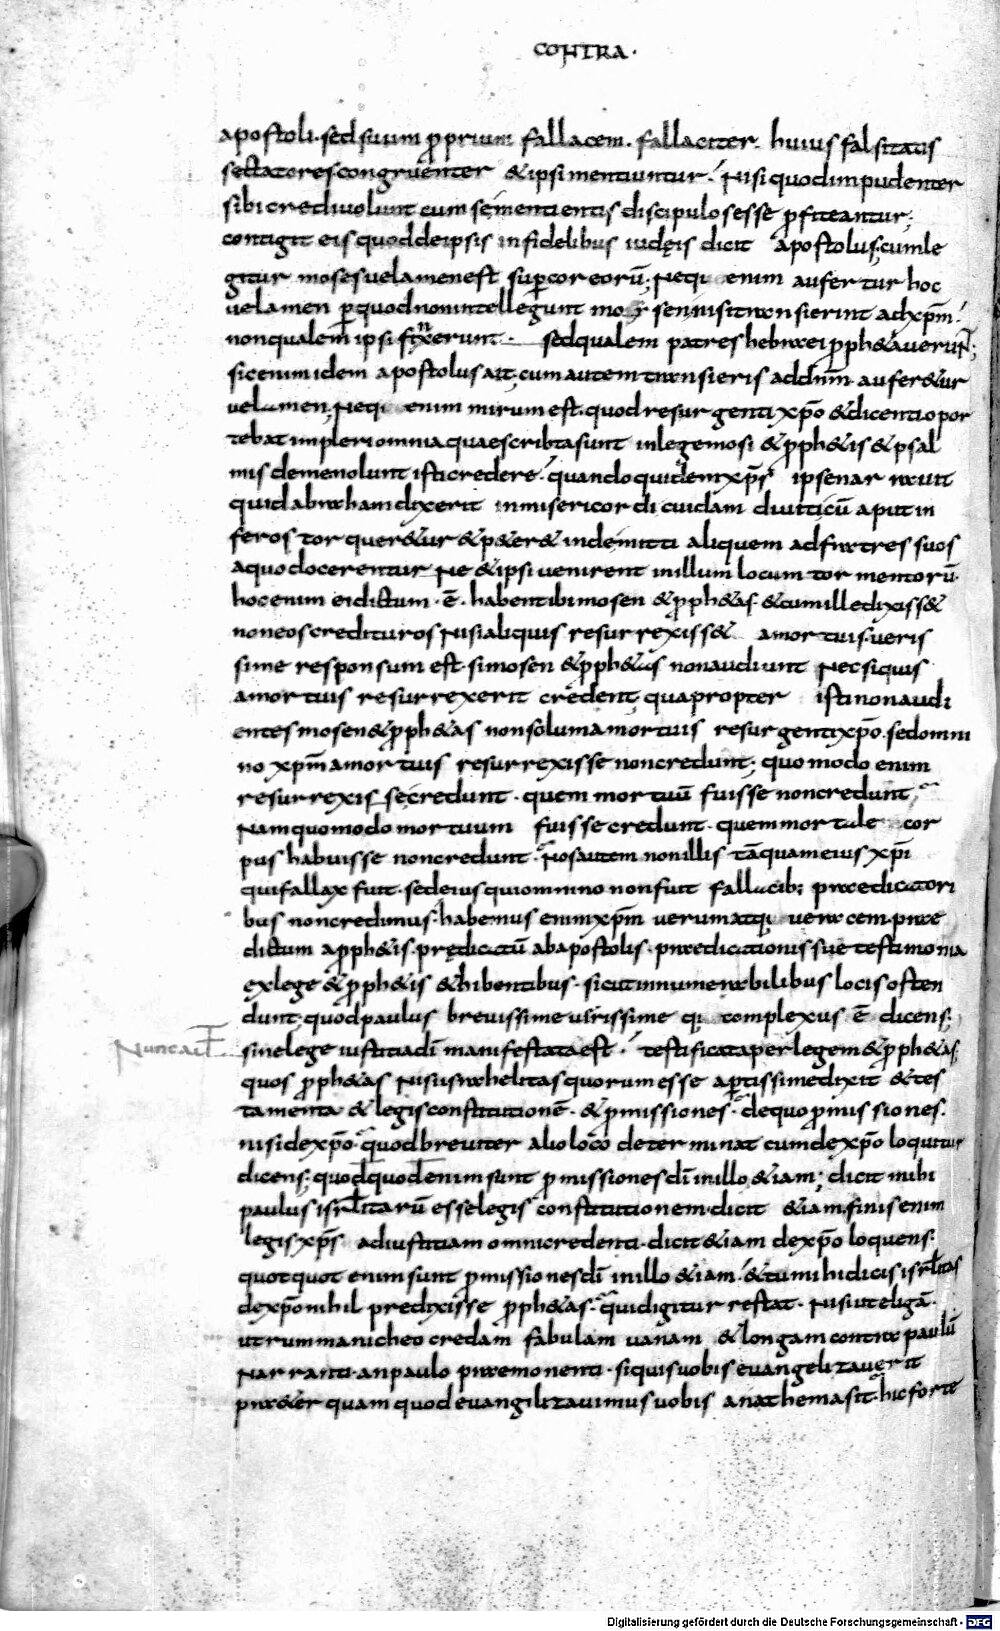 CONTRA·
apostoli· sed suum ꝓprium fallacem· fallaciter· huius falsitatis
sectatores congruenter & ipsi mentiuntur; Nisi quod impudenter
sibi credi volunt cum se mentientis discipulos esse ꝓfiteantur;
contigit eis quod de ipsis infidelibus iudęis dicit apostolus; cum le
gitur moses velamen est suꝑ cor eorū; Neq; enim aufertur hoc
velamen ꝑ quod non intellegunt mosen nisi transierint ad xp̄m;
non qualem ipsi finxerunt· sed qualem patres hebraei ꝓph&auerunt;
sic enim idem apostolus ait; cum autem transieris ad dn̄m· aufer&ur
velamen; Neq; enim mirum est· quod resurgenti xp̄o & dicenti opor
tebat impleri omnia quae scribta sunt in lege mosi & ꝓph&is & psal
mis de me nolunt isti credere· quandoquidem xp̄s ipse narravit
quid abraham dixerit inmisericordi cuidam diviti cū aput in
feros torquer&ur & p&er& inde mitti aliquem ad fratres suos
a quo docerentur Ne & ipsi venirent in illum locum tormentorū·
hoc enim ei dictum· ē· habent ibi mosen & ꝓph&as· & cum ille dixiss&
non eos credituros Nisi aliquis resurrexiss& a mortuis· veris
sime responsum est· si mosen & ꝓph&as non audiunt Nec si quis
a mortuis resurrexerit credent; quapropter isti non audi
entes mosen & ꝓph&as non solum a mortuis resurgenti xp̄o· sed omni
no xp̄m a mortuis resurrexisse non credunt; quomodo enim
resurrexisse credunt· quem mortuū fuisse non credunt;
Nam quomodo mortuum fuisse credunt· quem mortale cor
pus habuisse non credunt· Nos autem non illis tāquam eius xp̄i
qui fallax fuit· sed eius qui omnino non fuit fallacib; praedicatori
bus non credimus· habemus enim xp̄m verum atq; veracem· prae
dictum a ꝓph&is· prędicatū ab apostolis· praedicationis sue testimonia
ex lege & ꝓph&is &hibentibus· sicut innumerabilibus locis osten
dunt; quod paulus brevissime verissime q; complexus ē dicens;
Nunc aut̄
sine lege iustitia dī manifestata est· testificata per legem & ꝓph&as;
quos ꝓph&as Nisi israhelitas quorum esse aꝑtissime dixit & tes
tamenta & legis constitutionē· & ꝓmissiones· de quo ꝓmissiones·
nisi de xp̄o· quod breviter alio loco determinat cum de xp̄o loquitur
dicens; quodquod enim sunt ꝓmissiones dī in illo &iam; dicit mihi
paulus isrl̄itarū esse legis constitutionem· dicit &iam· finis enim
legis xp̄s ad iustitiam omni credenti· dicit &iam de xp̄o loquens·
quotquot enim sunt ꝓmissiones dī in illo &iam· & tu mihi dicis isrl̄itas
de xp̄o nihil predixisse ꝓph&as· quid igitur restat· Nisi ut eligā·
utrum manicheo credam fabulam vanam & longam contra paulū
Narranti· an paulo praemonenti· si quis vobis evangelizaverit
praeter quam quod evangilizavimus vobis anathema sit· hic forte
Digitalisierung gefördert durch die Deutsche Forschungsgemeinschaft - DFG